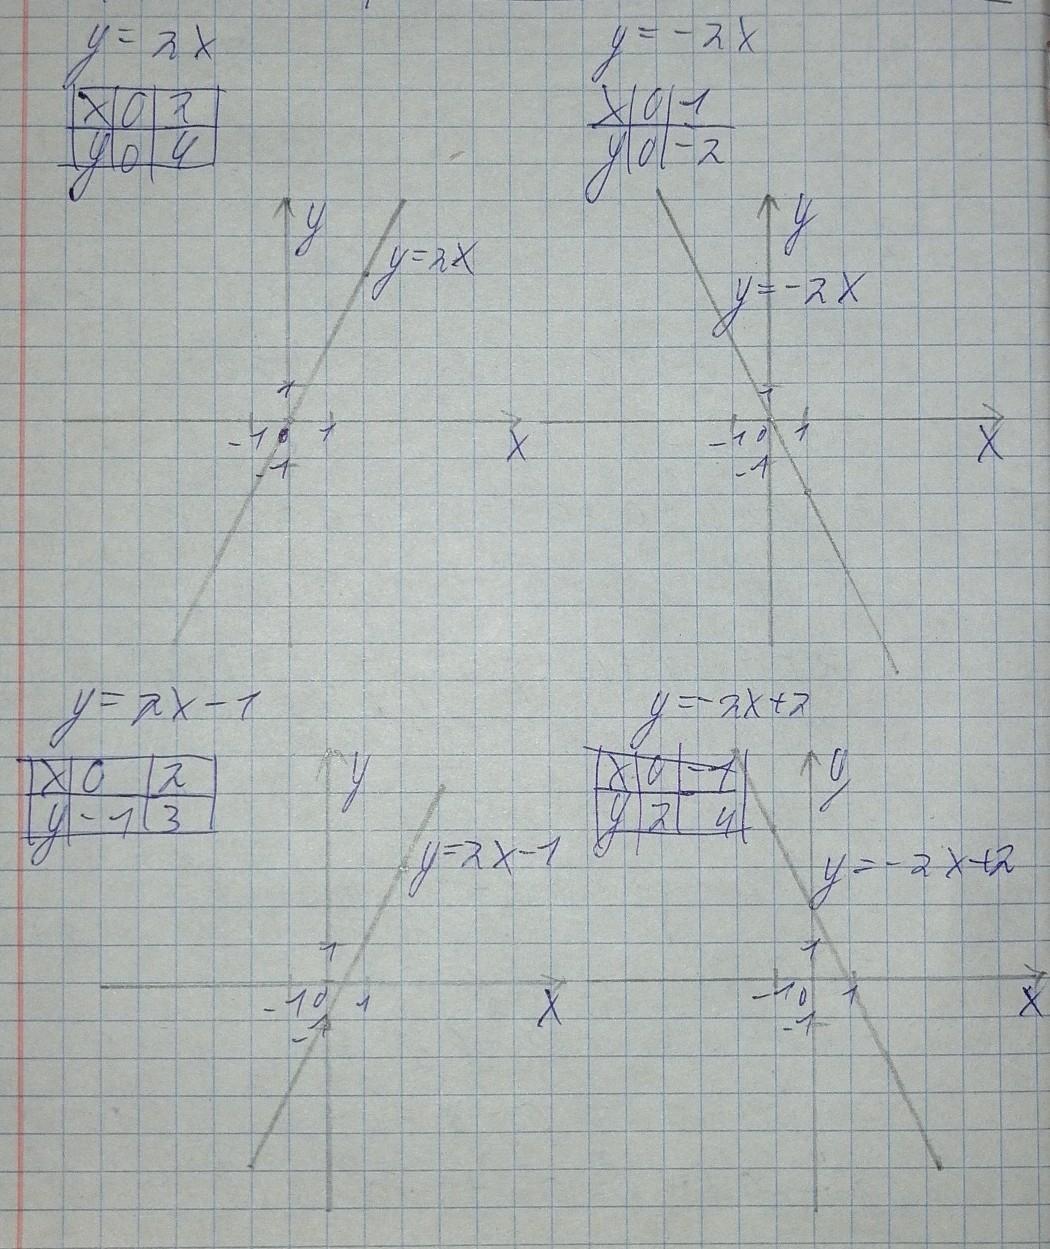 y = 2x
x 0 2
y 0 4
y
y=2x
1
-1 0 1
x
-1
y = -2x
x 0 1
y 0 -2
y
y=-2x
1
-1 0 1
x
-1
y = 2x-1
x 0 2
y -1 3
y
y=2x-1
1
-1 0 1
x
-1
y=-2x+2
x 0 -1
y 2 4
y
y=-2x+2
1
-1 0 1
x
-1